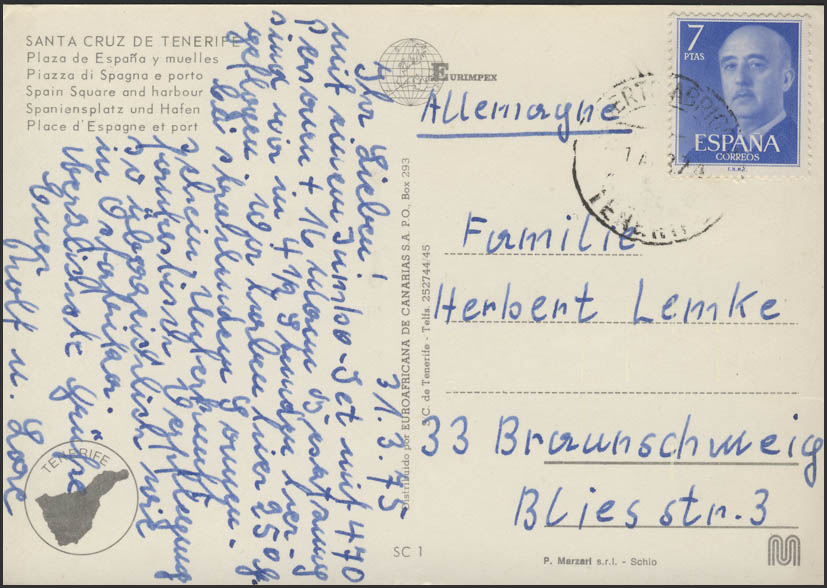 SANTA CRUZ DE TENERIFE
Plaza de España y muelles
Piazza di Spagna e porto
Spain Square and harbour
Spaniensplatz und Hafen
Place d'Espagne et port
EURIMPEX
7
PTAS
ESPAÑA
CORREOS
F.N.M.T.
TENERIF
Allemagne
Familie
Herbert Lemke
33 Braunschweig
Bliesstr. 3
31.3.75
Ihr Lieben!
mit einem Jumbo-Jet mit 470
Personen + 16 Mann Besatzung
sind wir in 4½ Stunden her-
geflogen. Wir haben hier 25°
bei strahlendem Sonnen-
schein. Unterkunft
fantastisch Verpflegung
so überreichlich wie
in Ostafrika.
Herzlichste Grüße
Euer
Rolf u. Lore
Distribuido por EUROAFRICANA DE CANARIAS S.A. P.O., Box 293
S/C. de Tenerife - Telfs. 252744/45
TENERIFE
SC 1
P. Marzari s.r.l. - Schio